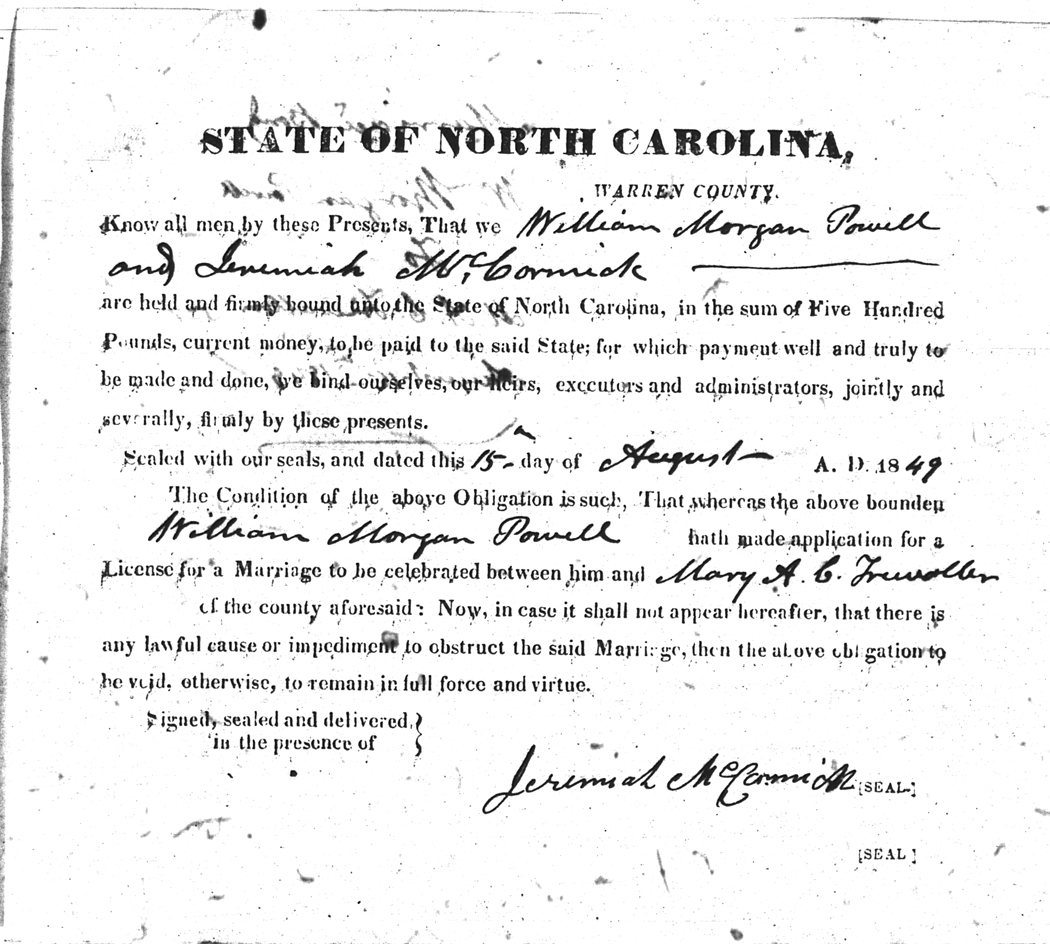 STATE OF NORTH CAROLINA,
WARREN COUNTY.
Know all men by these Presents, That we William Morgan Powell
and Jeremiah McCormick
are held and firmly bound unto the State of North Carolina, in the sum of Five Hundred
Pounds, current money, to be paid to the said State; for which payment well and truly to
be made and done, we bind ourselves, our heirs, executors and administrators, jointly and
severally, firmly by these presents.
Sealed with our seals, and dated this 15 day of August A. D. 1849
The Condition of the above Obligation is such, That whereas the above bounden
William Morgan Powell hath made application for a
License for a Marriage to be celebrated between him and Mary A. C.
of the county aforesaid: Now, in case it shall not appear hereafter, that there is
any lawful cause or impediment to obstruct the said Marriage, then the above obligation to
be void, otherwise, to remain in full force and virtue.
Signed, sealed and delivered,
in the presence of
Jeremiah McCormick [SEAL.]
[SEAL]